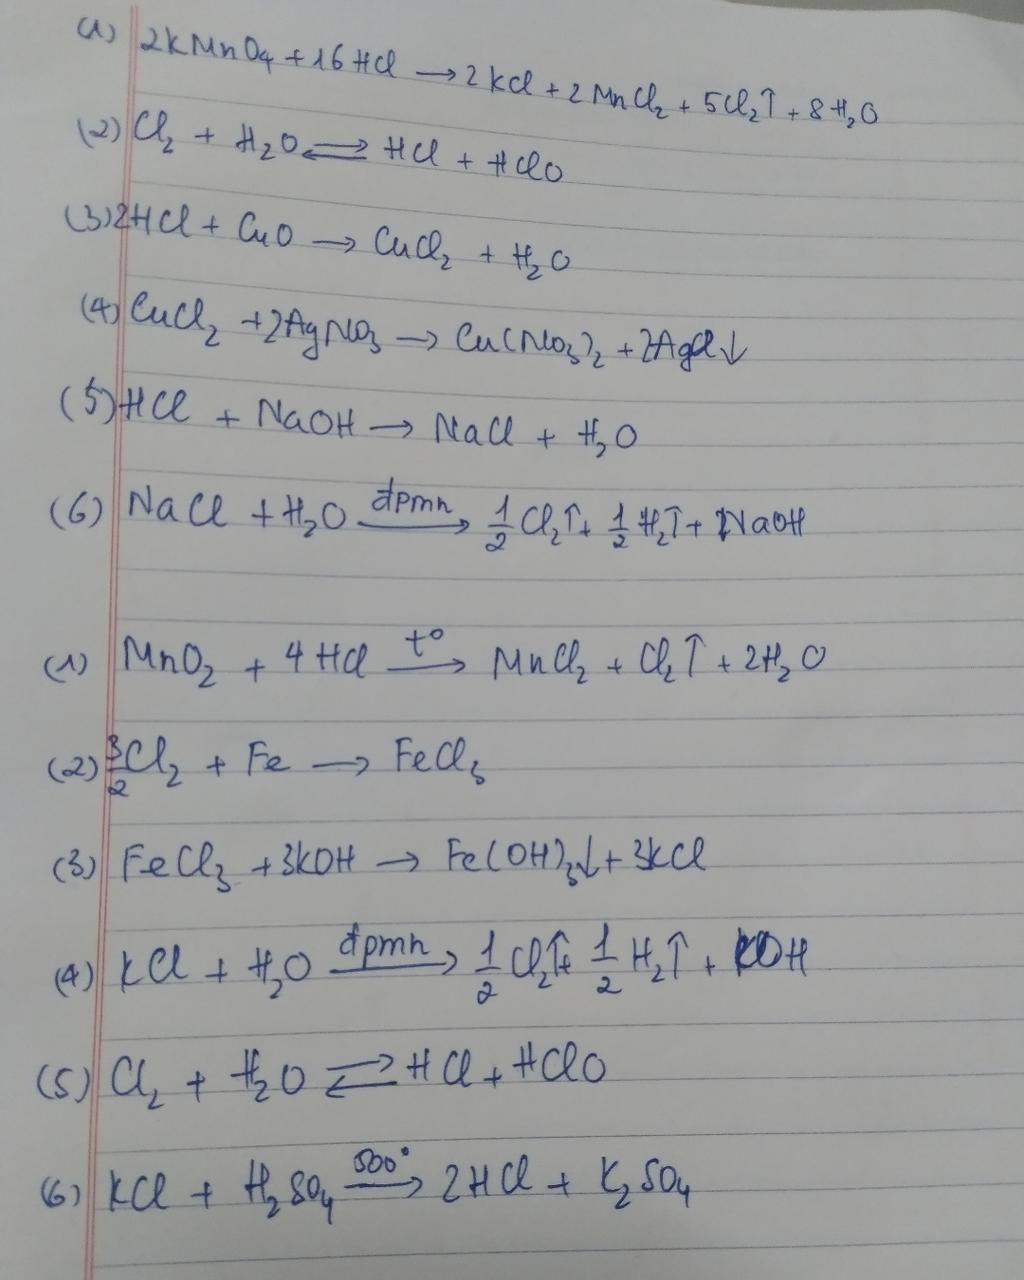 (1) 2KMnO₄ + 16HCl → 2KCl + 2MnCl₂ + 5Cl₂↑ + 8H₂O
(2) Cl₂ + H₂O ⇌ HCl + HClO
(3) 2HCl + CuO → CuCl₂ + H₂O
(4) CuCl₂ + 2AgNO₃ → Cu(NO₃)₂ + 2AgCl↓
(5) HCl + NaOH → NaCl + H₂O
(6) NaCl + H₂O —đpmn→ 1/2 Cl₂↑ + 1/2 H₂↑ + NaOH
(1) MnO₂ + 4HCl —t°→ MnCl₂ + Cl₂↑ + 2H₂O
(2) 3/2 Cl₂ + Fe → FeCl₃
(3) FeCl₃ + 3KOH → Fe(OH)₃↓ + 3KCl
(4) KCl + H₂O —đpmn→ 1/2 Cl₂↑ + 1/2 H₂↑ + KOH
(5) Cl₂ + H₂O ⇌ HCl + HClO
(6) KCl + H₂SO₄ —500°→ 2HCl + K₂SO₄